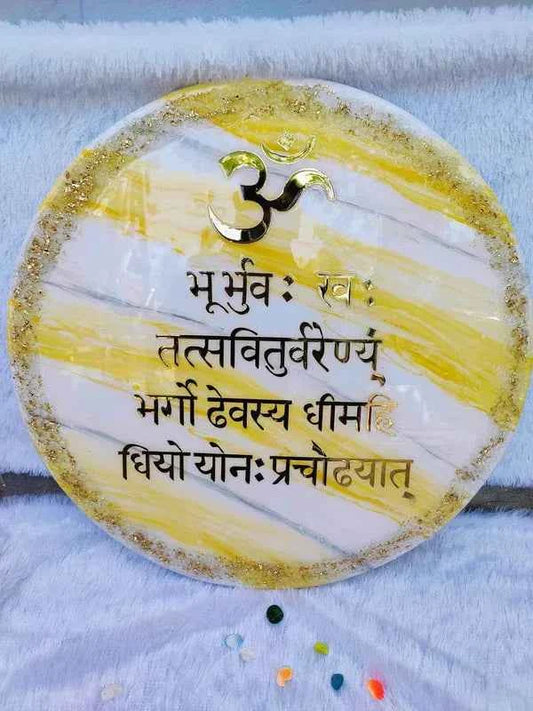 ॐ
भूर्भुव: स्व:
तत्सवितुर्वरेण्यं
भर्गो ढेवस्य धीमहि
धियो योन: प्रचौढयात्